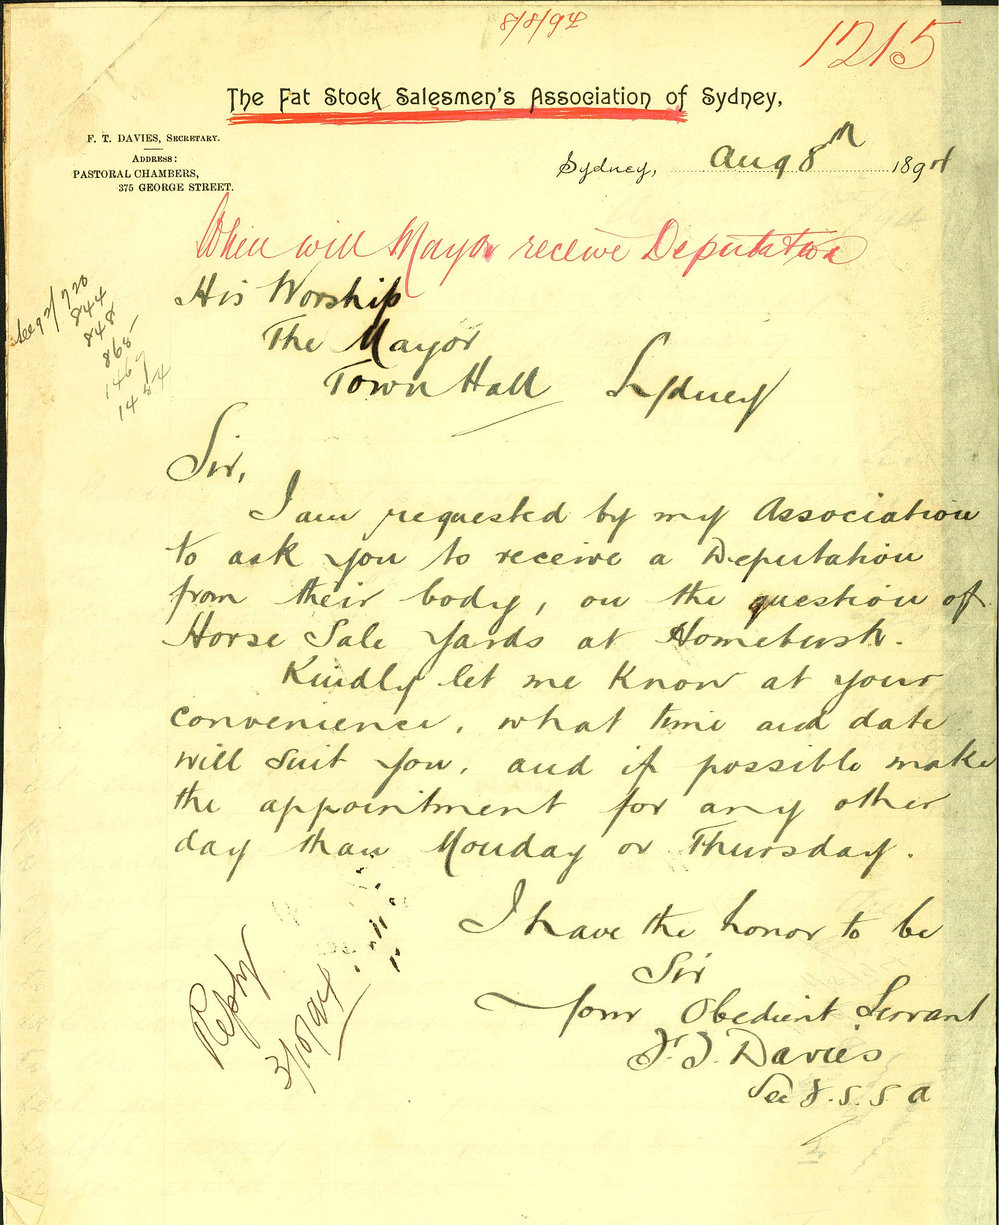 8/8/94
1215
The Fat Stock Salesmen's Association of Sydney,
F. T. DAVIES, SECRETARY.
ADDRESS:
PASTORAL CHAMBERS,
375 GEORGE STREET.
Sydney, Aug 8th 1894
When will Mayor receive Deputation
His Worship
The Mayor
Town Hall Sydney
See 92/720
844
848
868
1467
1454
Sir,
I am requested by my Association
to ask you to receive a Deputation
from their body, on the question of
Horse Sale Yards at Homebush.
Kindly let me know at your
convenience, what time and date
will suit you, and if possible make
the appointment for any other
day than Monday or Thursday.
I have the honor to be
Sir
Your Obedient Servant
F. T. Davies
Sec F. S. S A
Reply